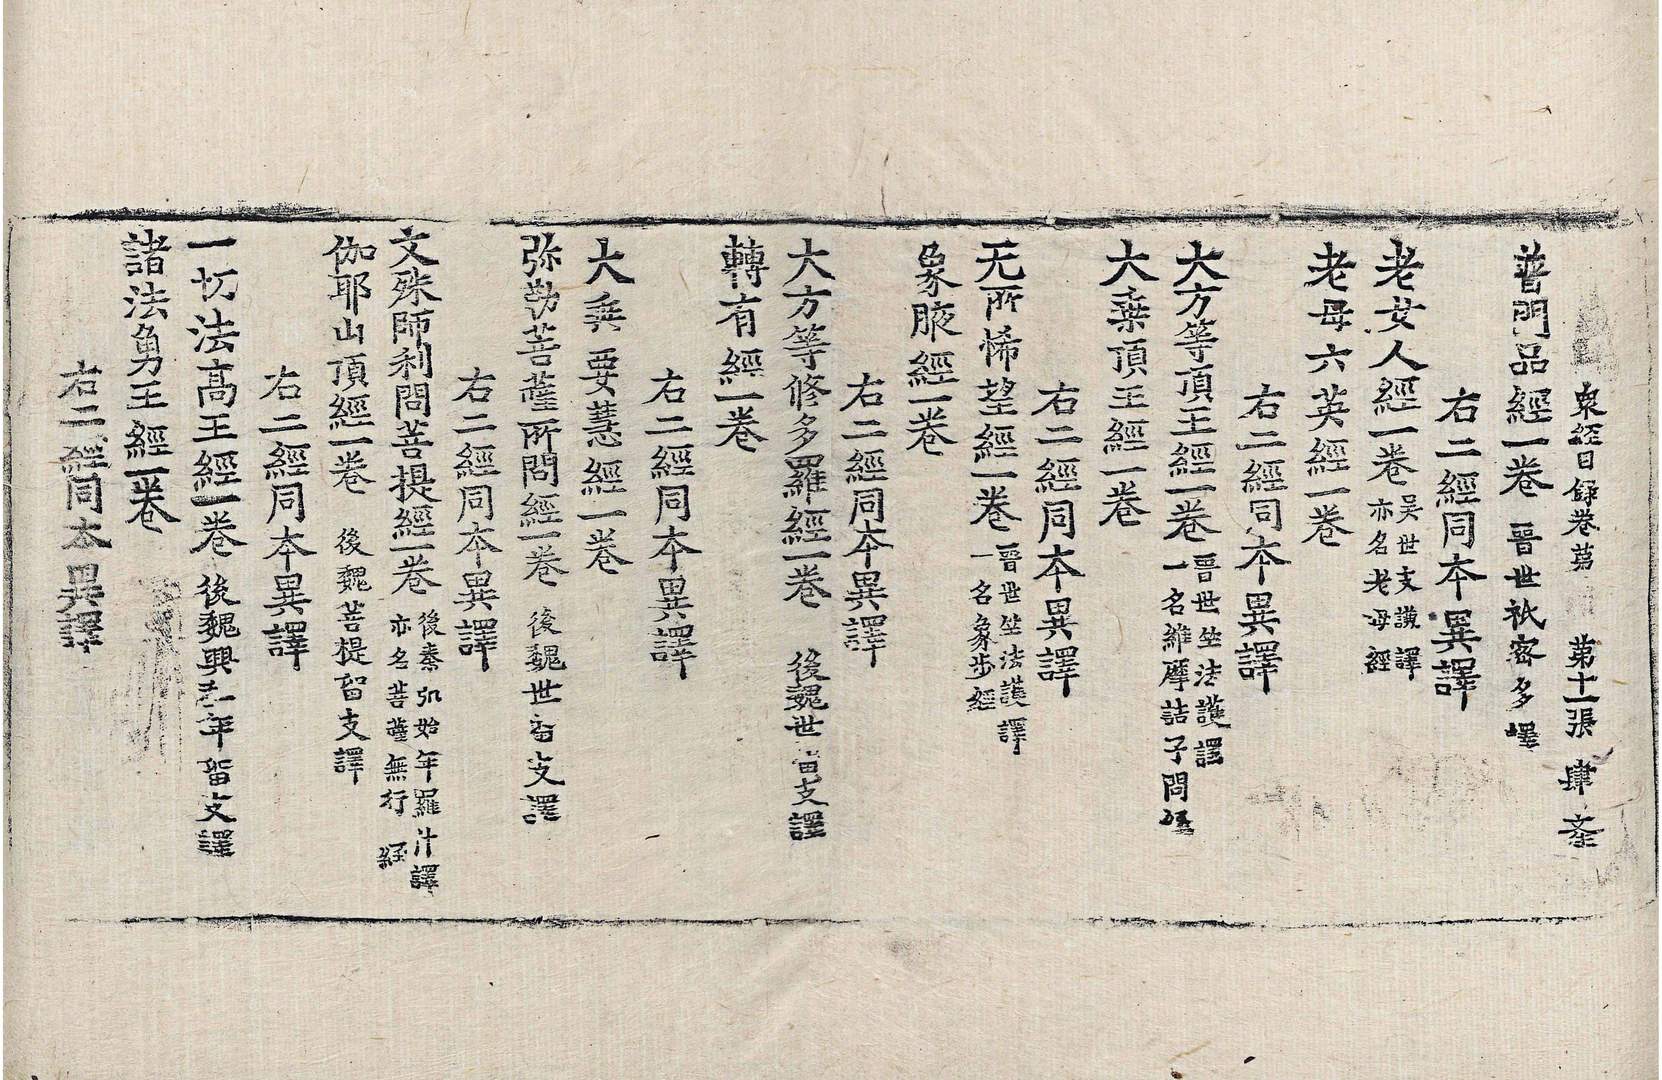 衆經目録卷苐 第十一張 肆 㤅
普門品經一卷 晉世祇密多譯
右二經同本異譯
老女人經一卷 吴世支謙譯
亦名老母經
老母六英經一卷
右二經同本異譯
大方等頂王經一卷 晉世竺法護譯
一名維摩詰子問經
大乗頂王經一卷
右二經同本異譯
无所悕望經一卷 晉世竺法護譯
一名象步經
象腋經一卷
右二經同本異譯
大方等修多羅經一卷 後魏世畱支譯
轉有經一卷
右二經同本異譯
大乗要慧經一卷
弥勒菩薩所問經一卷 後魏世畱支譯
右二經同本異譯
文殊師利問菩提經一卷 後秦弘始年羅什譯
亦名菩薩無行經
伽耶山頂經一卷 後魏菩提畱支譯
右二經同本異譯
一切法高王經一卷 後魏興和年畱支譯
諸法勇王經一卷
右二經同本異譯